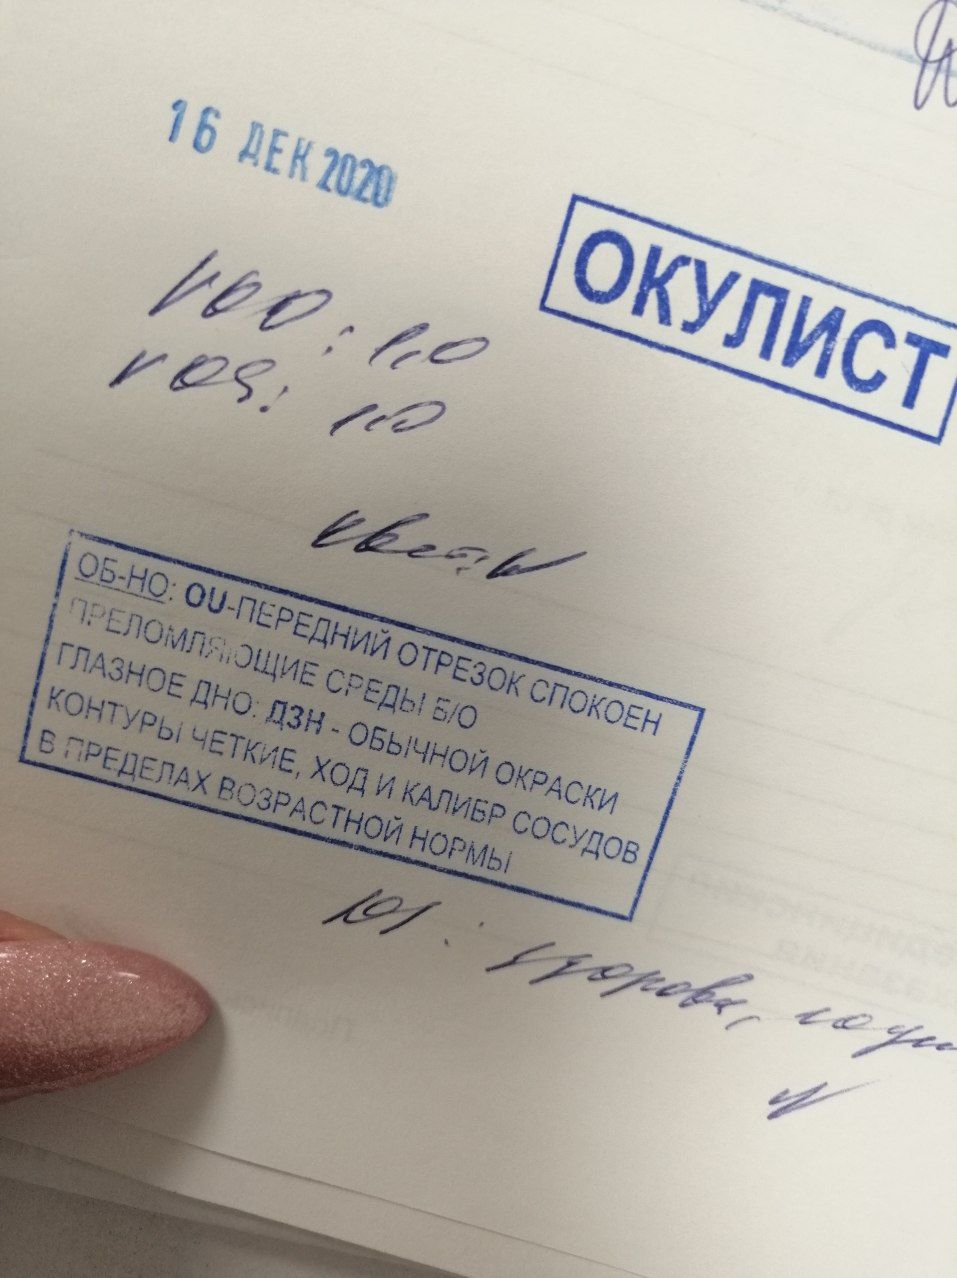 16 ДЕК 2020
ОКУЛИСТ
VOD: 1,0
VOS: 1,0
ОБ-НО: OU-ПЕРЕДНИЙ ОТРЕЗОК СПОКОЕН
ПРЕЛОМЛЯЮЩИЕ СРЕДЫ Б/О
ГЛАЗНОЕ ДНО: ДЗН - ОБЫЧНОЙ ОКРАСКИ
КОНТУРЫ ЧЕТКИЕ, ХОД И КАЛИБР СОСУДОВ
В ПРЕДЕЛАХ ВОЗРАСТНОЙ НОРМЫ
здорова,